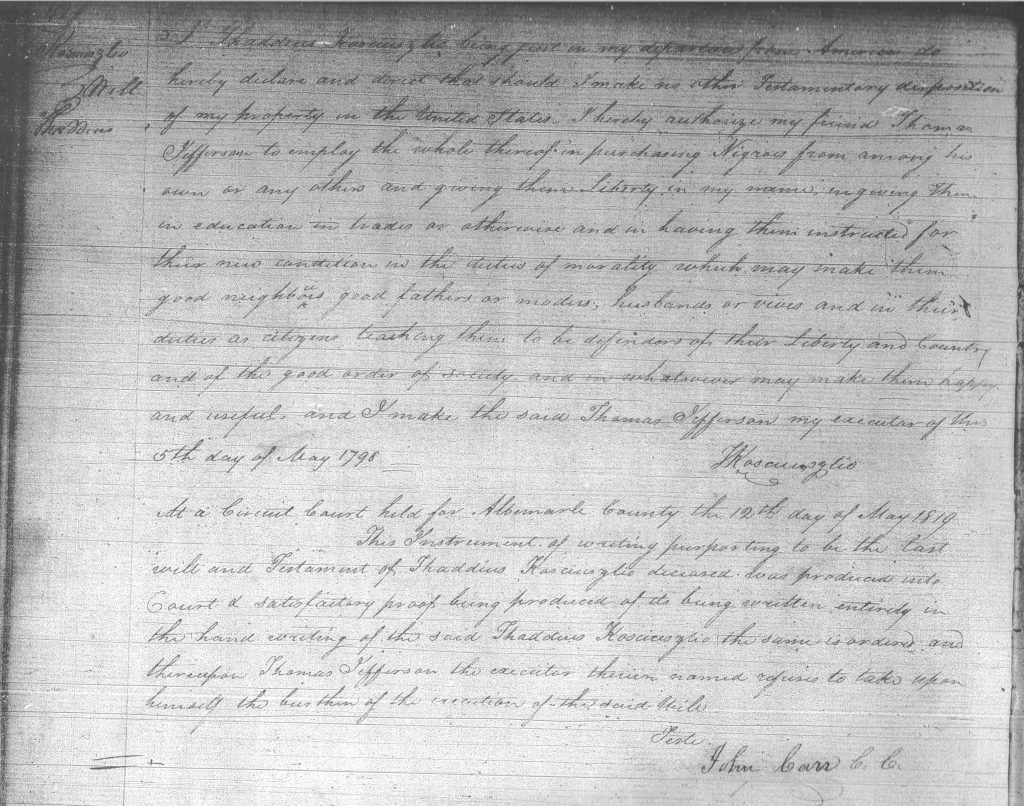 Kosciuszko
Will
Thaddeus
I Thaddeus Kosciuszko being just in my departure from America do
hereby declare and direct that should I make no other Testamentary disposition
of my property in the United States. I hereby authorize my friend Thomas
Jefferson to employ the whole thereof in purchasing Negroes from among his
own or any others and giving them Liberty in my name, in giving them
in education in trades or otherwise and in having them instructed for
their new condition in the duties of morality which may make them
good neighbours good fathers or moders, husbands or vives and in their
duties as citizens teaching them to be defenders of their Liberty and Country
and of the good order of society and in whatsoever may make them happy
and useful. and I make the said Thomas Jefferson my executor of this
5th day of May 1798
TKosciuszko
At a Circuit Court held for Albemarle County the 12th day of May 1819
This Instrument of writing purporting to be the last
will and Testament of Thaddeus Kosciuszko deceased was produced into
Court & satisfactory proof being produced of its being written entirely in
the hand writing of the said Thaddeus Kosciuszko the same is ordered and
thereupon Thomas Jefferson the executor therein named refuses to take upon
himself the burthen of the execution of the said Will
Teste
John Carr C. C.